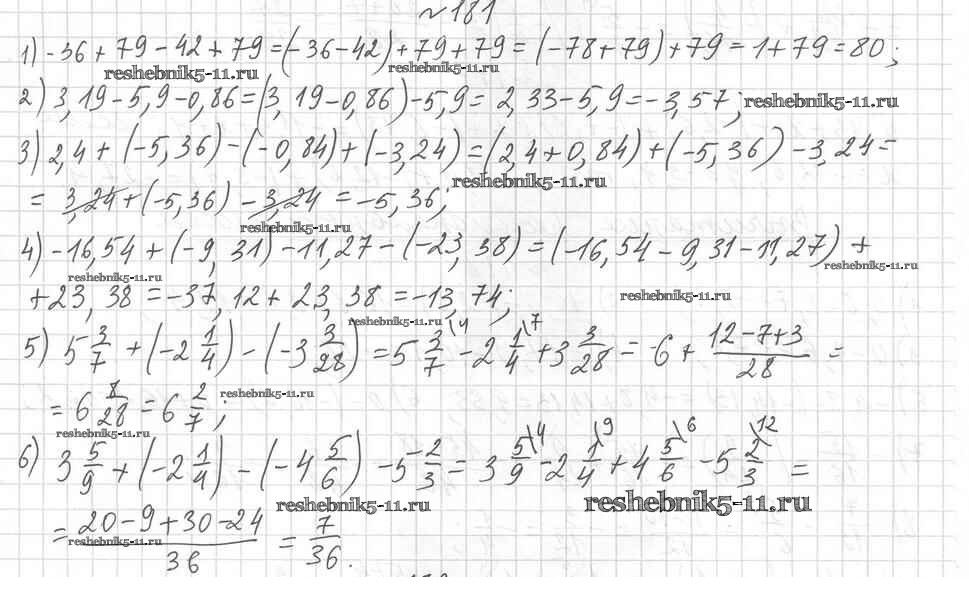 №181
1) -36 + 79 - 42 + 79 = (-36-42) + 79 + 79 = (-78 + 79) + 79 = 1 + 79 = 80;
reshebnik5-11.ru reshebnik5-11.ru
2) 3,19 - 5,9 - 0,86 = (3,19 - 0,86) - 5,9 = 2,33 - 5,9 = -3,57; reshebnik5-11.ru
3) 2,4 + (-5,36) - (-0,84) + (-3,24) = (2,4 + 0,84) + (-5,36) - 3,24 =
reshebnik5-11.ru
= 3,24 + (-5,36) - 3,24 = -5,36;
reshebnik5-11.ru
4) -16,54 + (-9,31) - 11,27 - (-23,38) = (-16,54 - 9,31 - 11,27) +
reshebnik5-11.ru reshebnik5-11.ru
+ 23,38 = -37,12 + 23,38 = -13,74; reshebnik5-11.ru
reshebnik5-11.ru
5) 5 3/7 + (-2 1/4) - (-3 3/28) = 5 3/7 \4 - 2 1/4 \7 + 3 3/28 = 6 + (12-7+3)/28 =
= 6 8/28 = 6 2/7; reshebnik5-11.ru
reshebnik5-11.ru
6) 3 5/9 + (-2 1/4) - (-4 5/6) - 5 2/3 = 3 5/9 \4 - 2 1/4 \9 + 4 5/6 \6 - 5 2/3 \12 =
reshebnik5-11.ru reshebnik5-11.ru
= (20-9+30-24)/36 = 7/36.
reshebnik5-11.ru